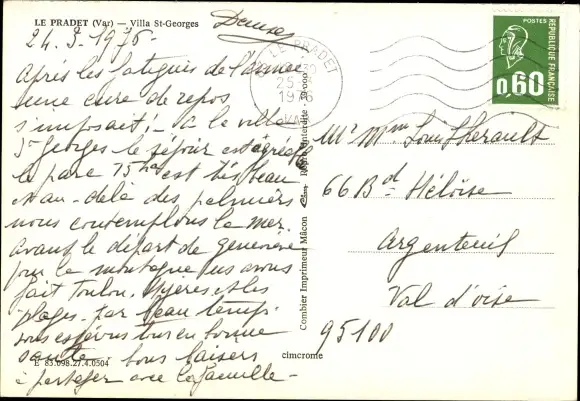 LE PRADET (Var) — Villa St-Georges
Denise
24.3.1976-
Après les fatigues de l'année
une cure de repos
s'imposait! - à la villa
St Georges le séjour est agréable
le parc 15 ha est très beau
Au-delà des palmiers
nous contemplons la mer.
Avant le départ de Geneviève
pour la montagne nous avons
fait Toulon, Hyères et les
plages. Par beau temps.
vous espérons tous en bonne
santé. Bons baisers
à partager avec la famille -
E 83.098.27.4.0504
Combier Imprimeur Mâcon
cimcrome
LE PRADET
25-3
1976
VAR
POSTES
RÉPUBLIQUE FRANÇAISE
0,60
Mr Mme Louis Lherault
66 Bd Héloïse
Argenteuil
Val d'oise
95100